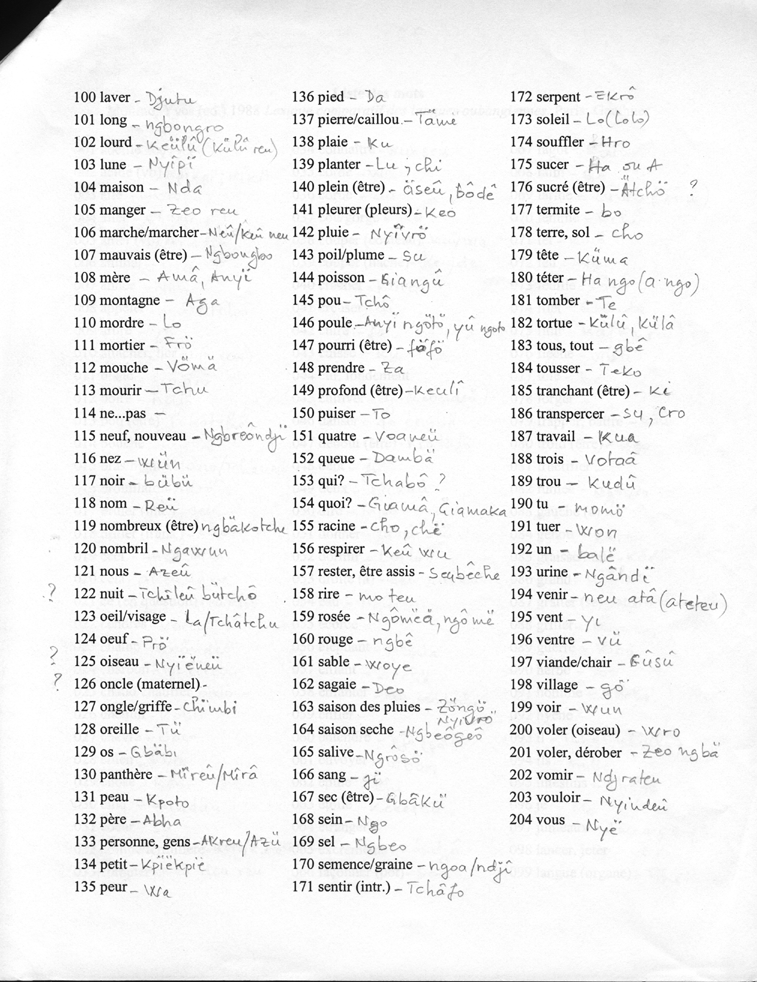 100 laver - Djutu
101 long - ngbongro
102 lourd - Keülû (Külû reu)
103 lune - Nyîpï
104 maison - Nda
105 manger - Zeo reu
106 marche/marcher - Neü/Keû neu
107 mauvais (être) - Ngbongbo
108 mère - Amâ, Anyï
109 montagne - Aga
110 mordre - Lo
111 mortier - Frö
112 mouche - Vömä
113 mourir - Tchu
114 ne...pas -
115 neuf, nouveau - Ngbreôndjï
116 nez - wün
117 noir - bübü
118 nom - Reü
119 nombreux (être) ngbäkotche
120 nombril - Ngawun
121 nous - Azeû
? 122 nuit - Tchîleû bütchô
123 oeil/visage - La/Tchâtchu
124 oeuf - Prö
? 125 oiseau - Nyïëneü
? 126 oncle (maternel) -
127 ongle/griffe - Chïmbi
128 oreille - Tü
129 os - Gbäbi
130 panthère - Mîreû/Mîrâ
131 peau - Kpoto
132 père - Abha
133 personne, gens - AKreu/Azü
134 petit - Kpïëkpïë
135 peur - wa
136 pied - Da
137 pierre/caillou - Täme
138 plaie - Ku
139 planter - Lu ; chi
140 plein (être) - äseû, bôdê
141 pleurer (pleurs) - Keo
142 pluie - Nyïvrö
143 poil/plume - Su
144 poisson - Giangû
145 pou - Tchô
146 poule - Anyï ngötö, yû ngoto
147 pourri (être) - föfö
148 prendre - Za
149 profond (être) - Keulî
150 puiser - To
151 quatre - Voaneü
152 queue - Dambä
153 qui? - Tchabô ?
154 quoi? - Giamâ, Giamaka
155 racine - cho, chë
156 respirer - Keû wu
157 rester, être assis - Seübëche
158 rire - mo teu
159 rosée - Ngômëä, ngô më
160 rouge - ngbê
161 sable - woye
162 sagaie - Deo
163 saison des pluies - Zöngö Nyivro
164 saison seche - Ngbeôgeô
165 salive - Ngrôsö
166 sang - ji
167 sec (être) - Gbâkü
168 sein - Ngo
169 sel - Ngbeo
170 semence/graine - ngoa/ndjî
171 sentir (intr.) - Tchâfo
172 serpent - EKrô
173 soleil - Lo (Lolo)
174 souffler - Hro
175 sucer - Ha ou A
176 sucré (être) - Ätchö ?
177 termite - bo
178 terre, sol - cho
179 tête - Küma
180 téter - Ha ngo (a ngo)
181 tomber - Te
182 tortue - Külû, Külâ
183 tous, tout - gbê
184 tousser - Teko
185 tranchant (être) - Ki
186 transpercer - Su, Cro
187 travail - Kua
188 trois - Votaâ
189 trou - Kudû
190 tu - momö
191 tuer - won
192 un - balë
193 urine - Ngândï
194 venir - neu atâ (ateteu)
195 vent - yi
196 ventre - vü
197 viande/chair - Gûsû
198 village - gô
199 voir - wun
200 voler (oiseau) - wro
201 voler, dérober - Zeo ngbä
202 vomir - Ndjrateu
203 vouloir - Nyindeû
204 vous - Nyë